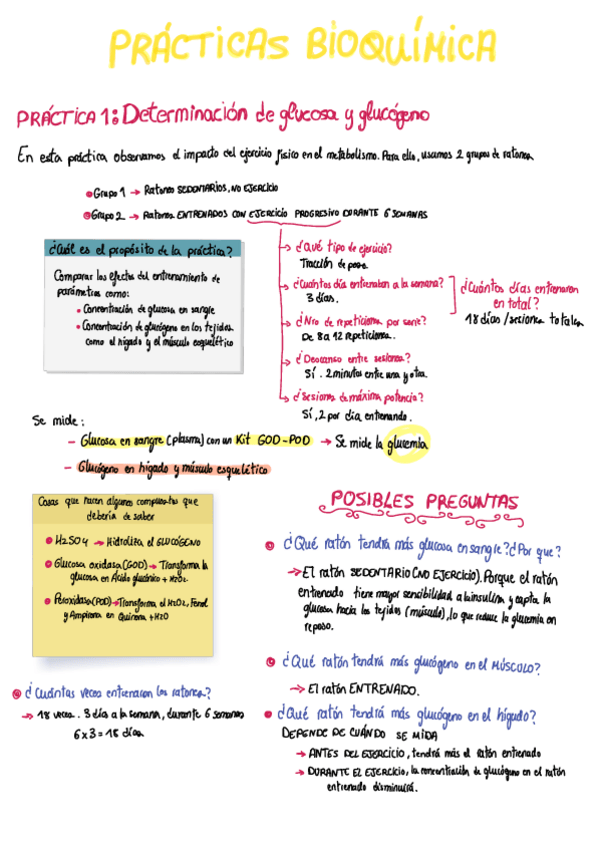 PRÁCTICAS BIOQUÍMICA
PRÁCTICA 1: Determinación de glucosa y glucógeno
En esta práctica observamos el impacto del ejercicio físico en el metabolismo. Para ello, usamos 2 grupos de ratones
Grupo 1 → Ratones SEDENTARIOS, NO EJERCICIO
Grupo 2 → Ratones ENTRENADOS CON EJERCICIO PROGRESIVO DURANTE 6 SEMANAS
¿Cuál es el propósito de la práctica?
Comparar los efectos del entrenamiento de
parámetros como:
• Concentración de glucosa en sangre
• Concentración de glucógeno en los tejidos
como el hígado y el músculo esquelético
¿Qué tipo de ejercicio?
Tracción de peso.
¿Cuántos día entrenaban a la semana?
3 días.
¿Nro de repeticiones por serie?
De 8 a 12 repeticiones.
¿Descanso entre sesiones?
Sí. 2 minutos entre una y otra.
¿Sesiones de máxima potencia?
Sí, 2 por día entrenando.
¿Cuántos días entrenaron
en total?
18 días/sesiones totales
Se mide:
- Glucosa en sangre (plasma) con un Kit GOD-POD → Se mide la glucemia
- Glucógeno en hígado y músculo esquelético
Cosas que hacen algunos compuestos que
debería de saber
H2SO4 → Hidroliza el GLUCÓGENO
Glucosa oxidasa (GOD) → Transforma la
glucosa en Ácido glucónico + H2O2.
Peroxidasa (POD) → Transforma el H2O2, Fenol
y Ampirona en Quinona + H2O
¿Cuántas veces entrenaron los ratones?
→ 18 veces. 3 días a la semana, durante 6 semanas
6x3 = 18 días
POSIBLES PREGUNTAS
¿Qué ratón tendrá más glucosa en sangre? ¿Por que?
→ El ratón SEDENTARIO (NO EJERCICIO). Porque el ratón
entrenado tiene mayor sensibilidad a la insulina y capta la
glucosa hacia los tejidos (músculo), lo que reduce la glucemia en
reposo.
¿Qué ratón tendrá más glucógeno en el MÚSCULO?
→ El ratón ENTRENADO.
¿Qué ratón tendrá más glucógeno en el hígado?
DEPENDE DE CUÁNDO SE MIDA
→ ANTES DEL EJERCICIO, tendrá más el ratón entrenado
→ DURANTE EL EJERCICIO, la concentración de glucógeno en el ratón
entrenado disminuirá.